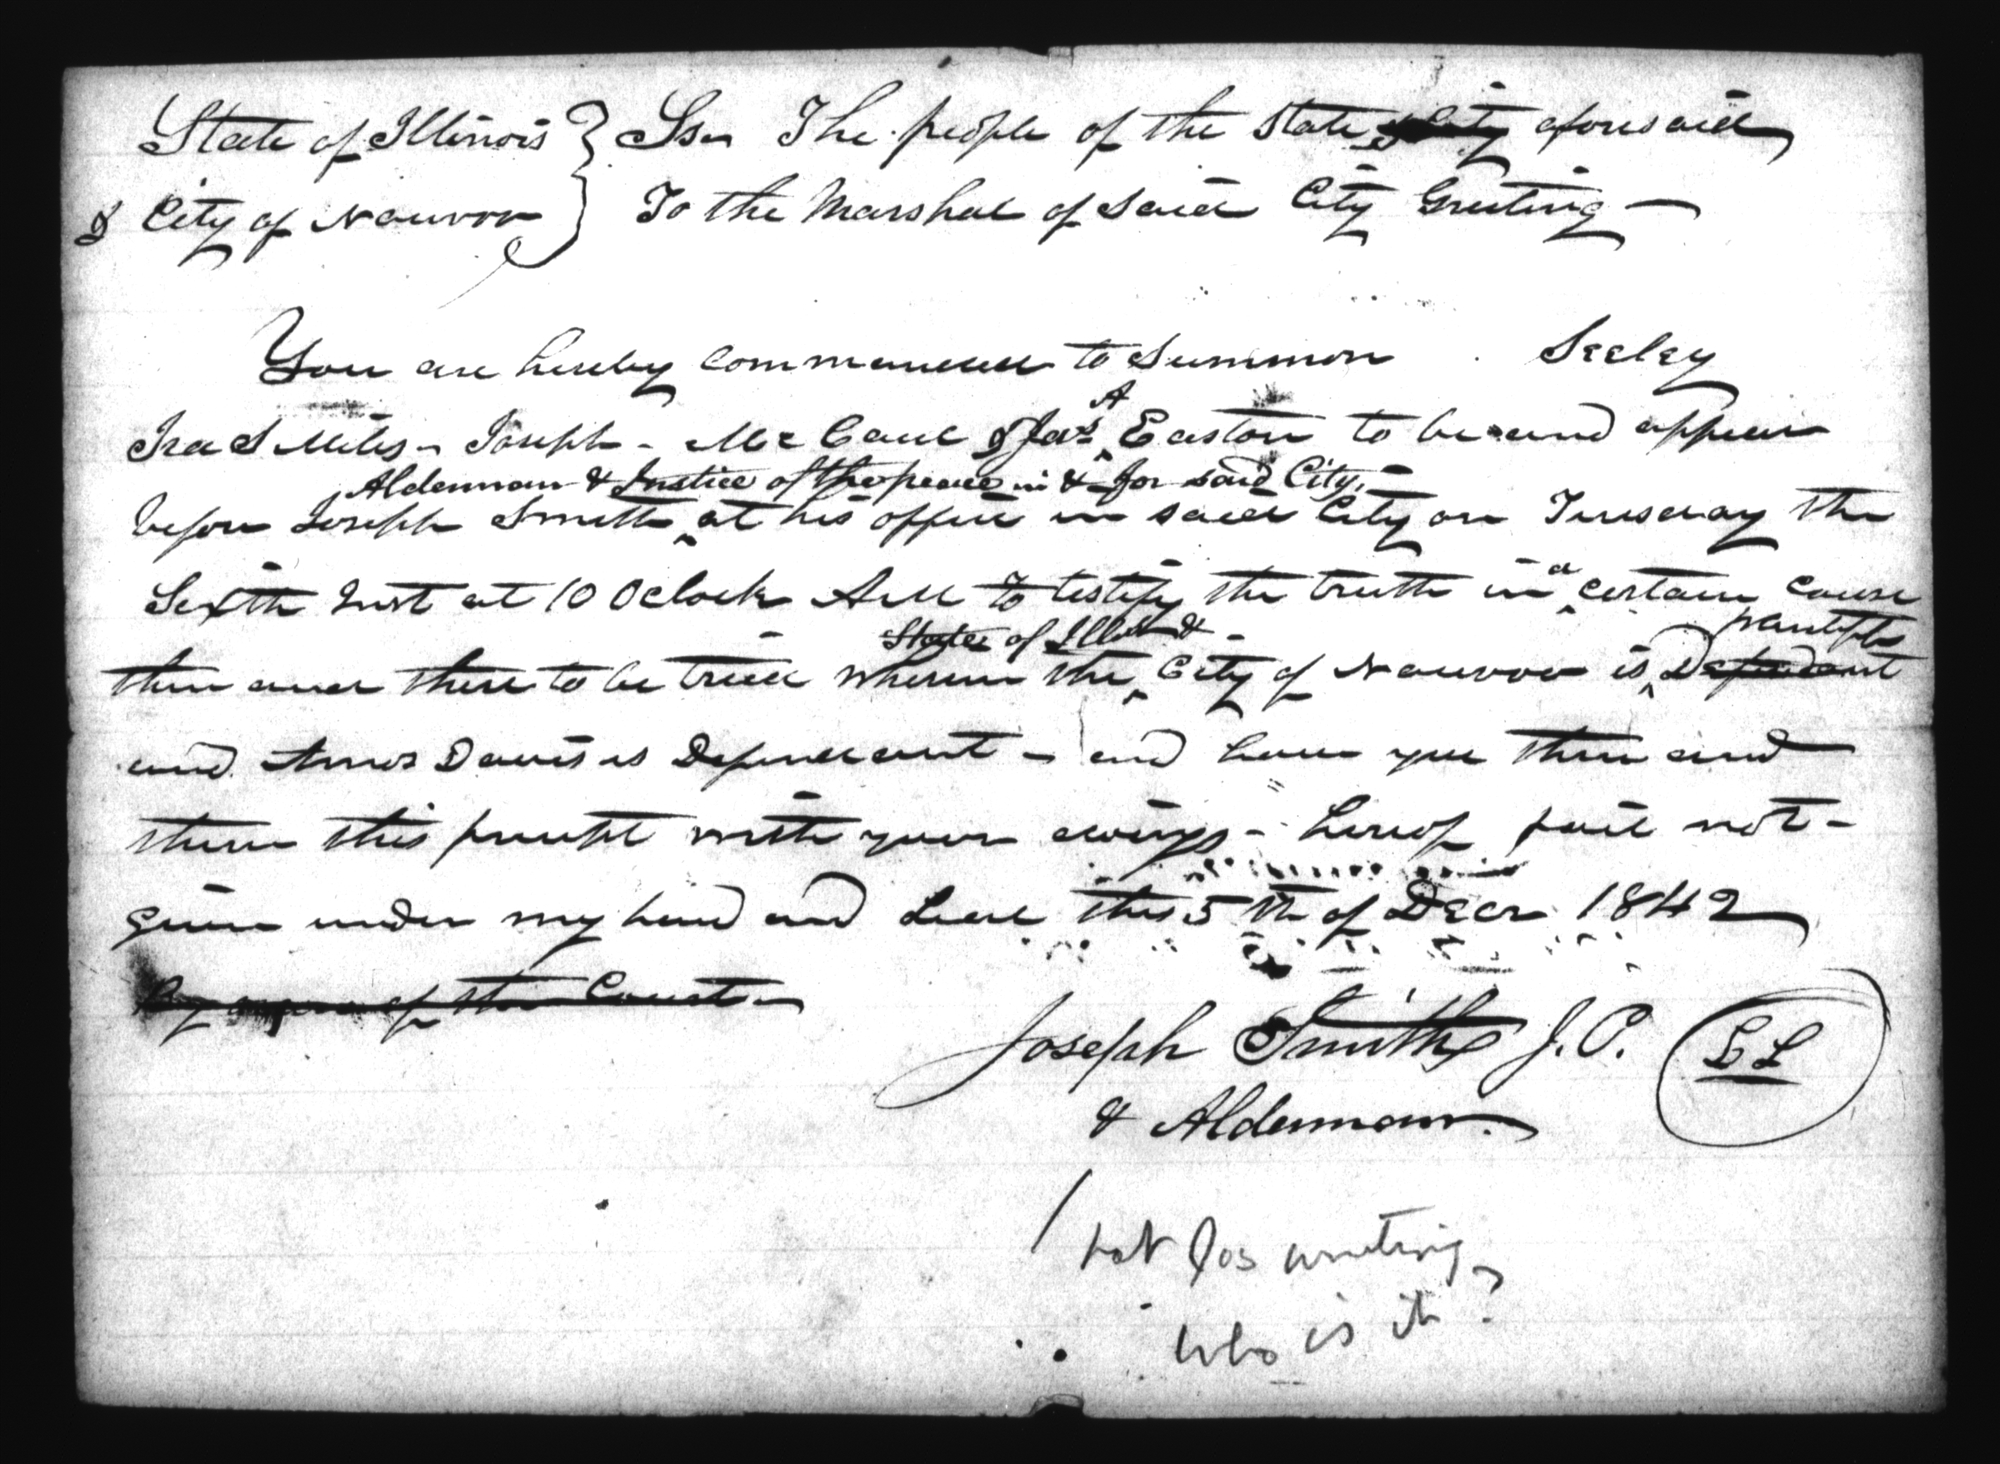 State of Illinois } Ss The people of the State & City aforesaid
& City of Nauvoo } To the Marshal of said City Greeting —
You are hereby commanded to Summon Seeley
A
Ira S Miles - Joseph - McCaul & Jas Easton to be and appear
Alderman & Justice of the peace in & for said City,
before Joseph Smith at his office in said City on Tuesday the
Sixth Inst at 10 O clock AM to testify the truth in a certain cause
State of Ills & plaintiffs
then and there to be tried wherein the City of Nauvoo is Defendant
and Amos Davis is Defendant - and have you then and
there this precept with your doings - hereof fail not -
given under my hand and Seal this 5th of Decr 1842
By order of the Court -
Joseph Smith J. P. LS
& Alderman.
not Jos writing
who is it?